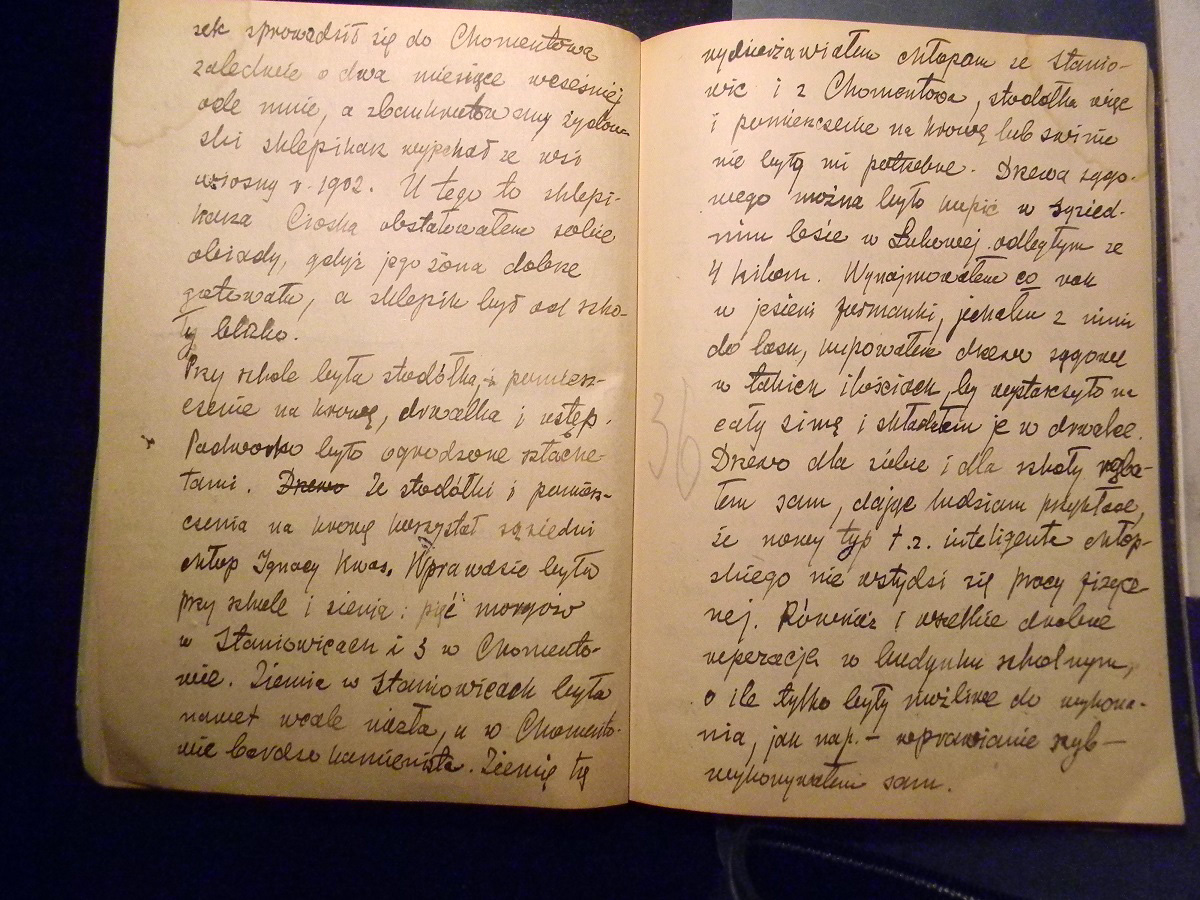 sek sprowadził się do Chomentowa
zaledwie o dwa miesiące wcześniej
ode mnie, a zbankrutowany żydow-
ski sklepikarz wyjechał ze wsi
wiosny r. 1902. U tego to sklepi-
karza Cioska obstalowałem sobie
obiady, gdyż jego żona dobrze
gotowała, a sklepik był od szko-
ły blizko.
Przy szkole była stodółka, i pomiesz-
czenie na krowę, drwalka i ustęp.
Podworko było ogrodzone sztache-
tami. Drzewo Ze stodółki i pomiesz-
czenia na krowę korzystał sąsiedni
chłop Ignacy Kwas. Wprawdzie była
przy szkole i ziemia: pięć morgów
w Staniowicach i 3 w Chomento-
wie. Ziemia w Staniowicach była
nawet wcale niezła, a w Chomento-
wie bardzo kamienista. Ziemię tę
wydzierżawiałem chłopom ze Stanio-
wic i z Chomentowa, stodółka więc
i pomieszczenie na krowę lub świnie
nie były mi potrzebne. Drzewa sągo-
wego można było kupić w sąsied-
nim lesie w Łukowej odległym ze
4 kilom. Wynajmowałem co rok
w jesieni furmanki, jechałem z nimi
do lasu, kupowałem drzewo sągowe
w takich ilościach, by wystarczyło na
całą zimę i składałem je w drwalce.
Drzewo dla siebie i dla szkoły rąba-
łem sam, dając ludziom przykład,
że nowy typ t. z. inteligenta chłop-
skiego nie wstydzi się pracy fizycz-
nej. Również i wszelkie drobne
reperacje w budynku szkolnym,
o ile tylko były możliwe do wykona-
nia, jak nap. – wprawianie szyb –
wykonywałem sam.
36